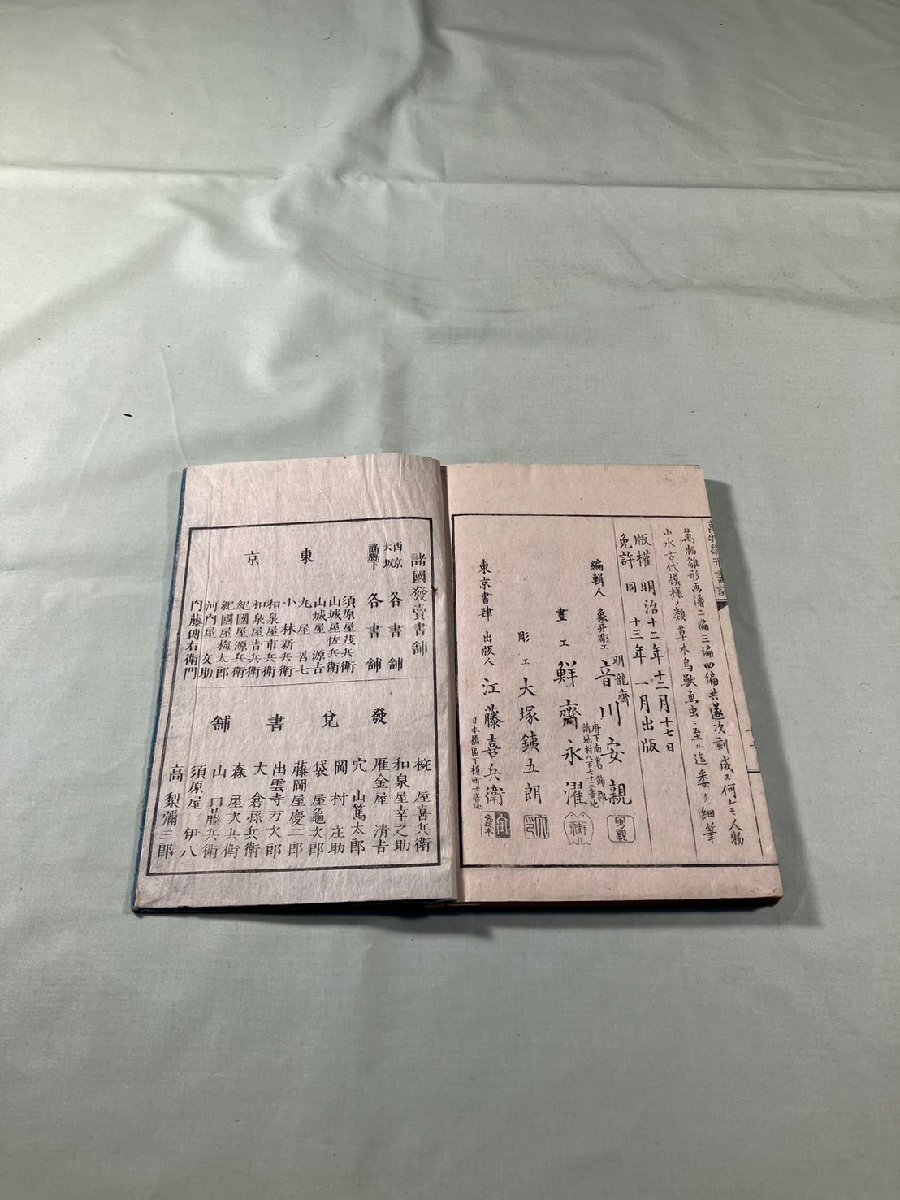 萬物雛形画譜二編三編四編共遂次刻成
山水古代模様類草木鳥獣魚虫
版權 明治十二年十二月十七日
免許 同 十三年一月出版
編輯人
明龍齋
音川安親
畫工 鮮齋永濯
彫工 大塚銕五朗
東京書肆 出版人 江藤喜兵衛
諸國發賣書舗
西京 各書舗
大坂
各書舗
東京
須原屋茂兵衛
山城屋佐兵衛
山城屋源吉
丸屋善七
小林新兵衛
和泉屋市兵衛
和泉屋吉兵衛
紀國屋源兵衛
紀國屋梅太郎
河内屋文助
内藤傳右衛門
發兌書舗
椀屋喜兵衛
和泉屋幸之助
雁金屋清吉
穴山篤太郎
岡村庄助
袋屋亀次郎
藤岡屋慶二郎
出雲寺万次郎
大倉孫兵衛
森屋次兵衛
山口藤兵衛
須原屋伊八
高梨彌三郎